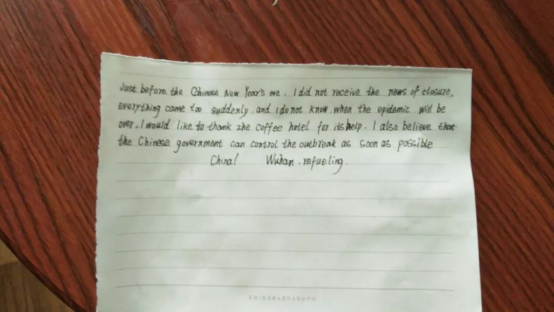 Just before the Chinese New Year's eve. I did not receive the news of closure,
everything came too suddenly. and I do not know when the epidemic will be
over. I would like to thank the coffee hotel for its help. I also believe that
the Chinese government can control the outbreak as soon as possible
China! Wuhan. refueling.